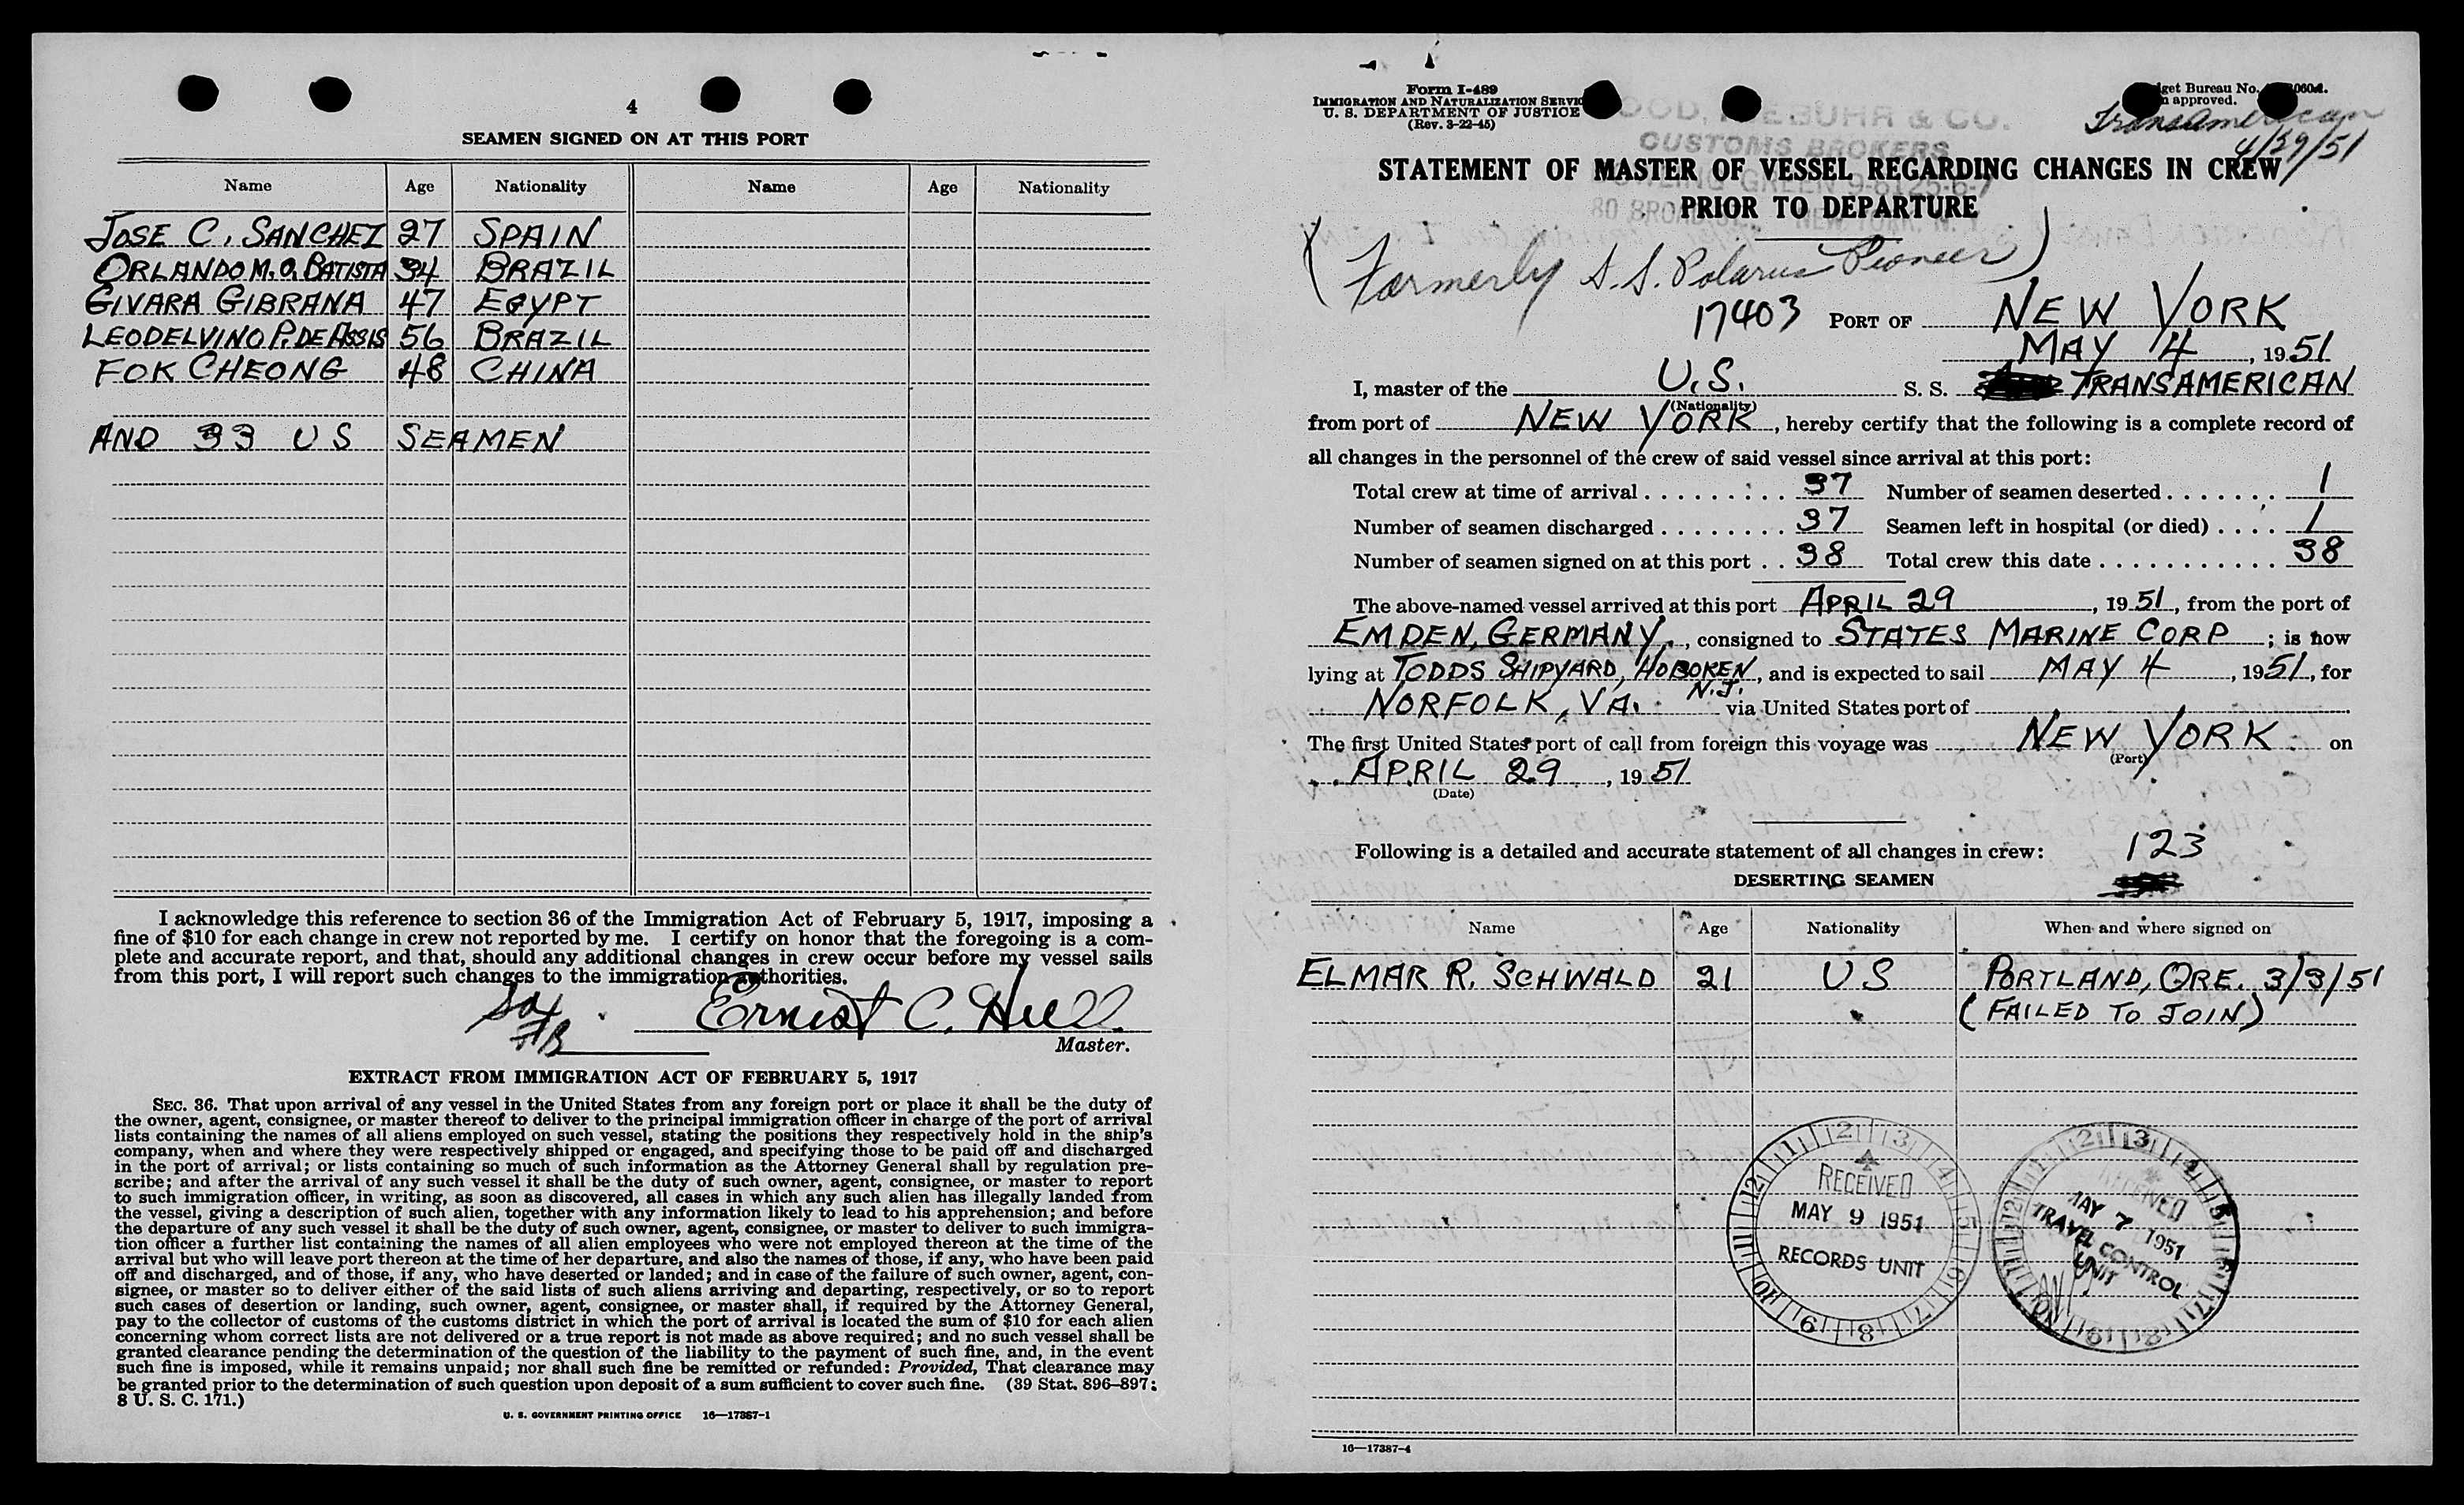 4
SEAMEN SIGNED ON AT THIS PORT
Name Age Nationality Name Age Nationality
JOSE C. SANCHEZ 27 SPAIN
ORLANDO M. O. BATISTA 34 BRAZIL
GIVARA GIBRANA 47 EGYPT
LEODELVINO P. DE ASSIS 56 BRAZIL
FOK CHEONG 48 CHINA
AND 33 US SEAMEN
I acknowledge this reference to section 36 of the Immigration Act of February 5, 1917, imposing a
fine of $10 for each change in crew not reported by me. I certify on honor that the foregoing is a com-
plete and accurate report, and that, should any additional changes in crew occur before my vessel sails
from this port, I will report such changes to the immigration authorities.
Ernest C. Hull
Master.
EXTRACT FROM IMMIGRATION ACT OF FEBRUARY 5, 1917
SEC. 36. That upon arrival of any vessel in the United States from any foreign port or place it shall be the duty of
the owner, agent, consignee, or master thereof to deliver to the principal immigration officer in charge of the port of arrival
lists containing the names of all aliens employed on such vessel, stating the positions they respectively hold in the ship's
company, when and where they were respectively shipped or engaged, and specifying those to be paid off and discharged
in the port of arrival; or lists containing so much of such information as the Attorney General shall by regulation pre-
scribe; and after the arrival of any such vessel it shall be the duty of such owner, agent, consignee, or master to report
to such immigration officer, in writing, as soon as discovered, all cases in which any such alien has illegally landed from
the vessel, giving a description of such alien, together with any information likely to lead to his apprehension; and before
the departure of any such vessel it shall be the duty of such owner, agent, consignee, or master to deliver to such immigra-
tion officer a further list containing the names of all alien employees who were not employed thereon at the time of the
arrival but who will leave port thereon at the time of her departure, and also the names of those, if any, who have been paid
off and discharged, and of those, if any, who have deserted or landed; and in case of the failure of such owner, agent, con-
signee, or master so to deliver either of the said lists of such aliens arriving and departing, respectively, or so to report
such cases of desertion or landing, such owner, agent, consignee, or master shall, if required by the Attorney General,
pay to the collector of customs of the customs district in which the port of arrival is located the sum of $10 for each alien
concerning whom correct lists are not delivered or a true report is not made as above required; and no such vessel shall be
granted clearance pending the determination of the question of the liability to the payment of such fine, and, in the event
such fine is imposed, while it remains unpaid; nor shall such fine be remitted or refunded: Provided, That clearance may
be granted prior to the determination of such question upon deposit of a sum sufficient to cover such fine. (39 Stat. 896–897;
8 U. S. C. 171.)
U. S. GOVERNMENT PRINTING OFFICE 16—17387-1
Form I-489
IMMIGRATION AND NATURALIZATION
U. S. DEPARTMENT OF JUSTICE
(Rev. 3-22-45)
& CO.
CUSTOMS BROKERS
GREEN 9-6125-6-7
80 BROAD NEW YORK, N. Y.
Bureau No.
approved.
Transamerican
4/29/51
STATEMENT OF MASTER OF VESSEL REGARDING CHANGES IN CREW
PRIOR TO DEPARTURE
(Formerly S. S. Polarus Pioneer)
17403 PORT OF NEW YORK
MAY 4, 1951
I, master of the U.S. S. S. TRANSAMERICAN
(Nationality)
from port of NEW YORK, hereby certify that the following is a complete record of
all changes in the personnel of the crew of said vessel since arrival at this port:
Total crew at time of arrival 37 Number of seamen deserted 1
Number of seamen discharged 37 Seamen left in hospital (or died) 1
Number of seamen signed on at this port 38 Total crew this date 38
The above-named vessel arrived at this port APRIL 29, 1951, from the port of
EMDEN, GERMANY, consigned to STATES MARINE CORP; is now
lying at TODDS SHIPYARD, HOBOKEN N.J., and is expected to sail MAY 4, 1951, for
NORFOLK, VA. via United States port of
The first United States port of call from foreign this voyage was NEW YORK on
(Port)
APRIL 29, 1951
(Date)
Following is a detailed and accurate statement of all changes in crew: 123
DESERTING SEAMEN
Name Age Nationality When and where signed on
ELMAR R. SCHWALD 21 US PORTLAND, ORE. 3/3/51
(FAILED TO JOIN)
RECEIVED
MAY 9 1951
RECORDS UNIT
RECEIVED
MAY 7 1951
TRAVEL CONTROL
UNIT
16—17387-4